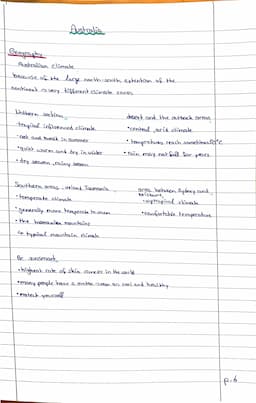 Australia
Geography
Australian climate
because of the large north-south extention of the
continent is very different climate zones
Northern section
tropical influenced climate
hot and humid in summer
quite warm and dry in winter
dry season, rainy season
desert and the outback areas
central, arid climate
temperatures reach sometimes
rain may not fall for years
Southern areas, island Tasmania
temperate climate
generally more temperate
the mountains
typical mountain climate
area between Sydney and
subtropical climate
comfortable temperature
Be
highest rate of skin cancer in the world
many people have a cool and healthy
protect yourself
p. 6